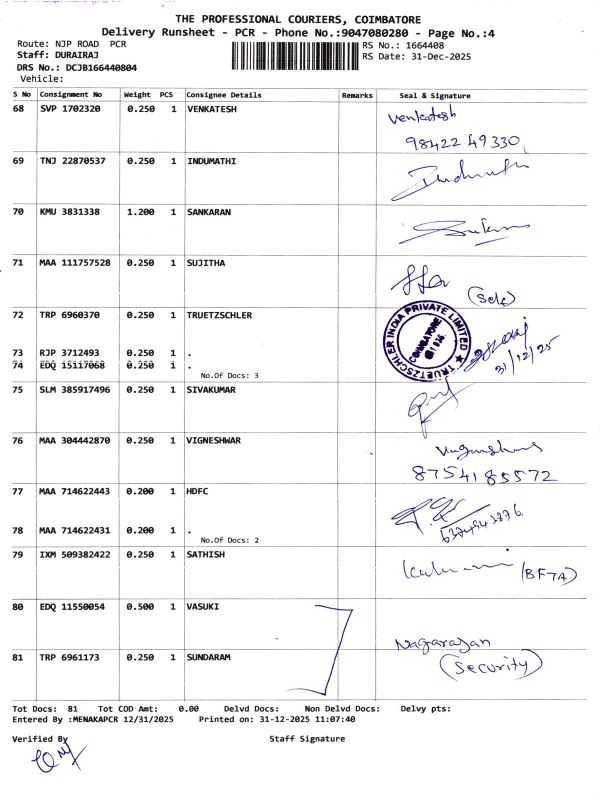 THE PROFESSIONAL COURIERS, COIMBATORE
Delivery Runsheet - PCR - Phone No.:9047080280 - Page No.:4
Route: NJP ROAD PCR
RS No.: 1664408
Staff: DURAIRAJ
RS Date: 31-Dec-2025
DRS No.: DCJB166440804
Vehicle:
S No Consignment No Weight PCS Consignee Details Remarks Seal & Signature
68 SVP 1702320 0.250 1 VENKATESH Venkatesh
98422 49330
69 TNJ 22870537 0.250 1 INDUMATHI
70 KMU 3831338 1.200 1 SANKARAN
71 MAA 111757528 0.250 1 SUJITHA
(Self)
72 TRP 6960370 0.250 1 TRUETZSCHLER
TRUETZSCHLER INDIA PRIVATE LIMITED
COIMBATORE
31/12/25
73 RJP 3712493 0.250 1 .
74 EDQ 15117068 0.250 1 .
No.Of Docs: 3
75 SLM 385917496 0.250 1 SIVAKUMAR
76 MAA 304442870 0.250 1 VIGNESHWAR
8754185572
77 MAA 714622443 0.200 1 HDFC
78 MAA 714622431 0.200 1 .
No.Of Docs: 2
79 IXM 509382422 0.250 1 SATHISH
(BF7A)
80 EDQ 11550054 0.500 1 VASUKI
Nagarajan
(Security)
81 TRP 6961173 0.250 1 SUNDARAM
Tot Docs: 81 Tot COD Amt: 0.00 Delvd Docs: Non Delvd Docs: Delvy pts:
Entered By :MENAKAPCR 12/31/2025 Printed on: 31-12-2025 11:07:40
Verified By Staff Signature